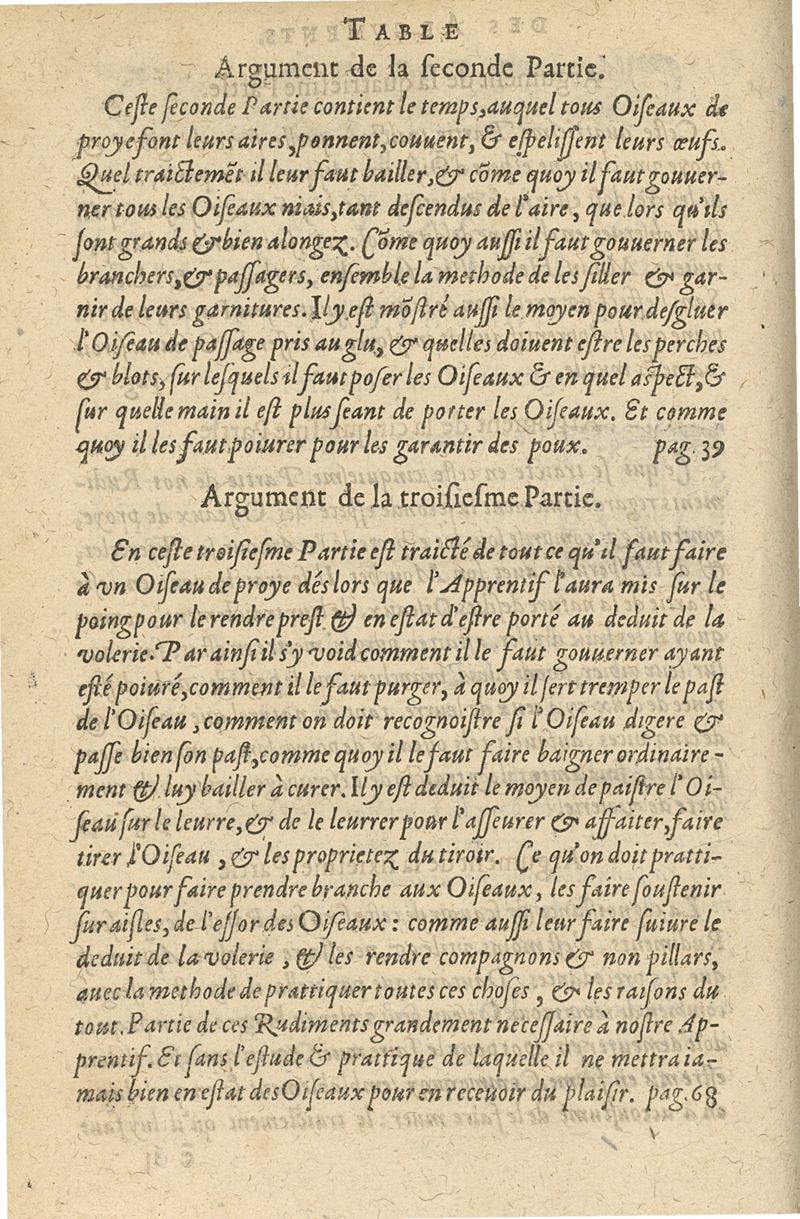 TABLE
Argument de la seconde Partie.
Ceste seconde Partie contient le temps, auquel tous Oiseaux de
proye font leurs aires, ponnent, couuent, & espelissent leurs œufs.
Quel traictemẽt il leur faut bailler, & cõme quoy il faut gouuer-
ner tous les Oiseaux niais, tant descendus de l'aire, que lors qu'ils
sont grands & bien alongez. Cõme quoy aussi il faut gouuerner les
branchers, & passagers, ensemble la methode de les siller & gar-
nir de leurs garnitures. Il y est mõstré aussi le moyen pour desgluer
l'Oiseau de passage pris au glu, & quelles doiuent estre les perches
& blots, sur lesquels il faut poser les Oiseaux & en quel aspect, &
sur quelle main il est plus seant de porter les Oiseaux. Et comme
quoy il les faut poiurer pour les garantir des poux. pag. 39
Argument de la troisiesme Partie.
En ceste troisiesme Partie est traicté de tout ce qu'il faut faire
à vn Oiseau de proye dés lors que l'Apprentif l'aura mis sur le
poing pour le rendre prest & en estat d'estre porté au deduit de la
volerie. Par ainsi il s'y void comment il le faut gouuerner ayant
esté poiuré, comment il le faut purger, à quoy il sert tremper le past
de l'Oiseau, comment on doit recognoistre si l'Oiseau digere &
passe bien son past, comme quoy il le faut faire baigner ordinaire-
ment & luy bailler à curer. Il y est deduit le moyen de paistre l'Oi-
seau sur le leurre, & de le leurrer pour l'asseurer & affaiter, faire
tirer l'Oiseau, & les proprietez du tiroir. Ce qu'on doit pratti-
quer pour faire prendre branche aux Oiseaux, les faire soustenir
sur aisles, de l'essor des Oiseaux : comme aussi leur faire suiure le
deduit de la volerie, & les rendre compagnons & non pillars,
auec la methode de prattiquer toutes ces choses, & les raisons du
tout. Partie de ces Rudiments grandement necessaire à nostre Ap-
prentif. Et sans l'estude & prattique de laquelle il ne mettra ia-
mais bien en estat des Oiseaux pour en receuoir du plaisir. pag. 68